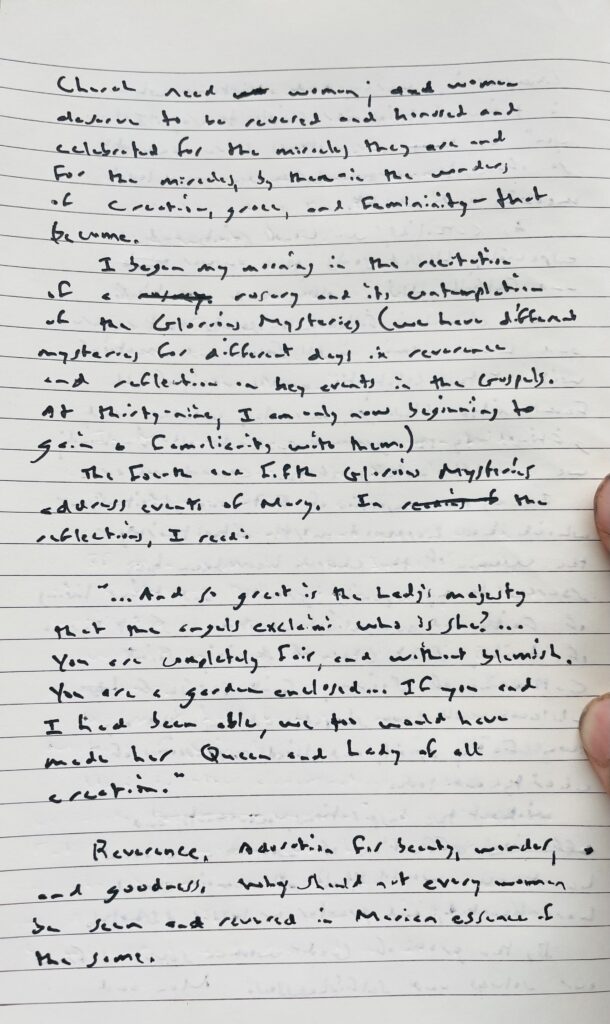 Church need women; and women
deserve to be revered and honored and
celebrated for the miracles they are and
for the miracles, by them-in the wonders
of creation, grace, and femininity- that
become.
I began my morning in the recitation
of a rosary and its contemplation
of the Glorious Mysteries (we have different
mysteries for different days in reverence
and reflection on key events in the Gospels.
At thirty-nine, I am only now beginning to
gain a familiarity with them.)
The Fourth and Fifth Glorious Mysteries
address events of Mary. In the
reflections, I read:
"...And so great is the Lady's majesty
that the angels exclaim: who is she?...
You are completely fair, and without blemish.
You are a garden enclosed... If you and
I had been able, we too would have
made her Queen and Lady of all
creation."
Reverence. Adoration for beauty, wonder,
and goodness. Why should not every woman
be seen and revered in Marian essence of
the same.